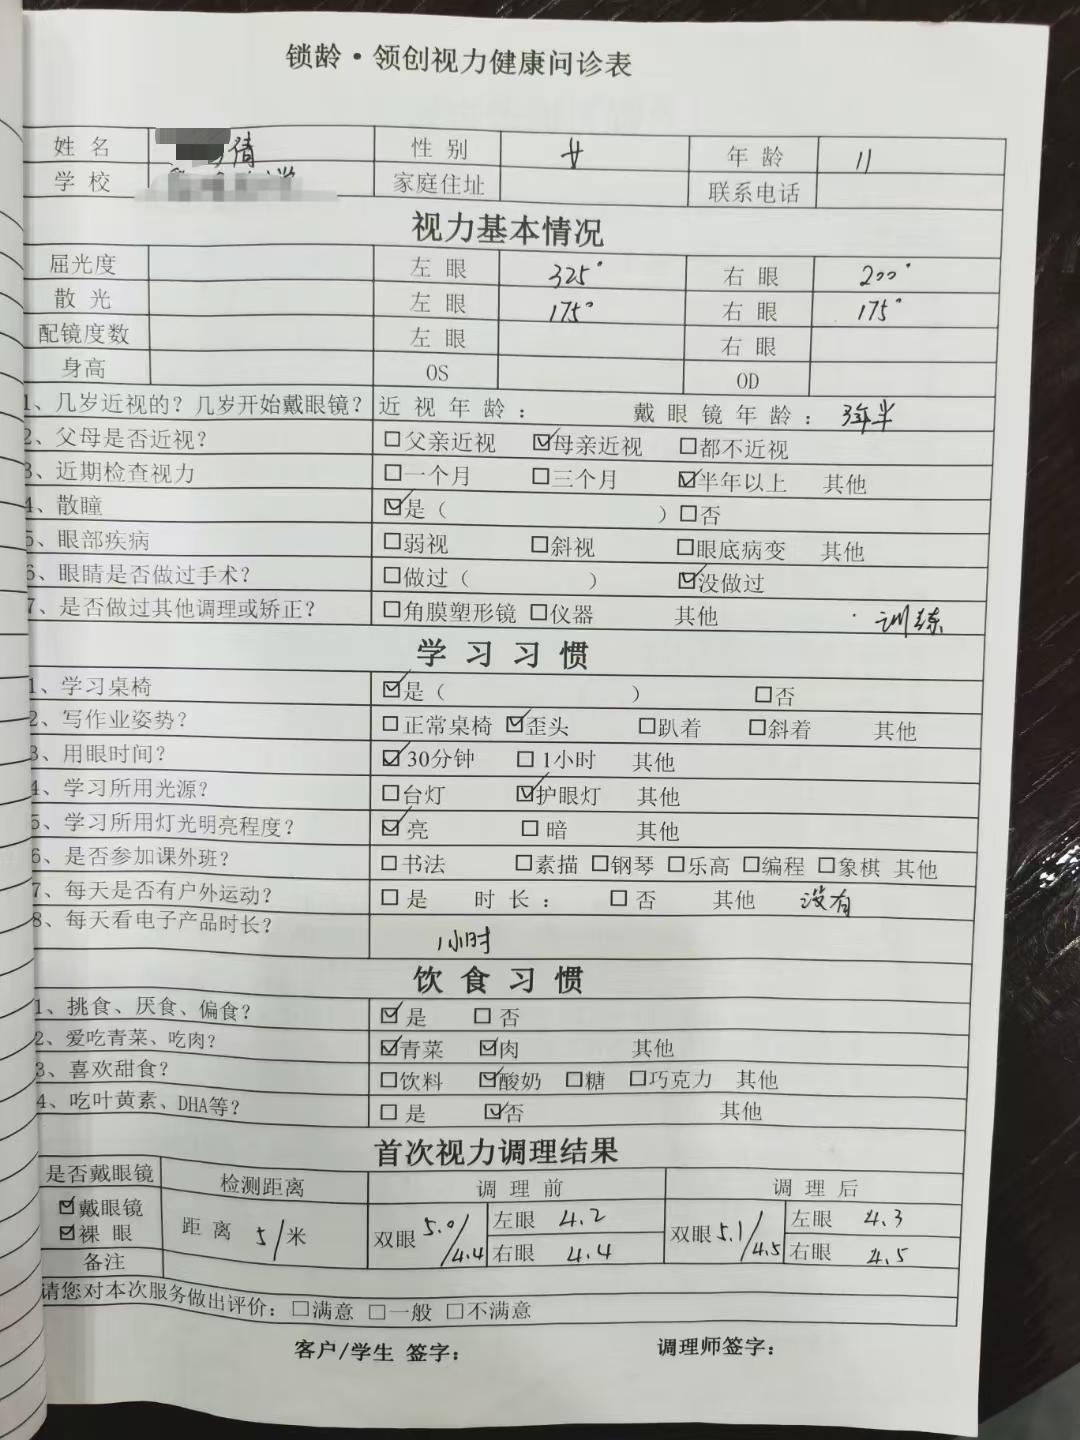 锁龄·领创视力健康问诊表
姓名 倩 性别 女 年龄 11
学校 家庭住址 联系电话
视力基本情况
屈光度 左眼 325° 右眼 200°
散光 左眼 175° 右眼 175°
配镜度数 左眼 右眼
身高 OS OD
1、几岁近视的？几岁开始戴眼镜？ 近视年龄： 戴眼镜年龄： 3年半
2、父母是否近视？ □父亲近视 ☑母亲近视 □都不近视
3、近期检查视力 □一个月 □三个月 ☑半年以上 其他
4、散瞳 ☑是（ ）□否
5、眼部疾病 □弱视 □斜视 □眼底病变 其他
6、眼睛是否做过手术？ □做过（ ） ☑没做过
7、是否做过其他调理或矫正？ □角膜塑形镜 □仪器 其他 训练
学习习惯
1、学习桌椅 ☑是（ ） □否
2、写作业姿势？ □正常桌椅 ☑歪头 □趴着 □斜着 其他
3、用眼时间？ ☑30分钟 □1小时 其他
4、学习所用光源？ □台灯 ☑护眼灯 其他
5、学习所用灯光明亮程度？ ☑亮 □暗 其他
6、是否参加课外班？ □书法 □素描 □钢琴 □乐高 □编程 □象棋 其他
7、每天是否有户外运动？ □是 时长： □否 其他 没有
8、每天看电子产品时长？ 1小时
饮食习惯
1、挑食、厌食、偏食？ ☑是 □否
2、爱吃青菜、吃肉？ ☑青菜 ☑肉 其他
3、喜欢甜食？ □饮料 ☑酸奶 □糖 □巧克力 其他
4、吃叶黄素、DHA等？ □是 ☑否 其他
首次视力调理结果
是否戴眼镜 检测距离 调理前 调理后
☑戴眼镜 ☑裸眼 距离 5/米 双眼 5.0/4.4 左眼 4.2 双眼 5.1/4.5 左眼 4.3
右眼 4.4 右眼 4.5
备注
请您对本次服务做出评价：□满意 □一般 □不满意
客户/学生 签字： 调理师签字：